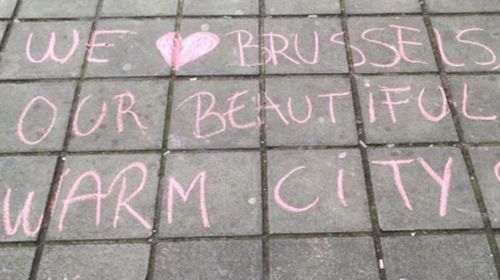 WE ♥ BRUSSELS
OUR BEAUTiFUL
WARM CiTY